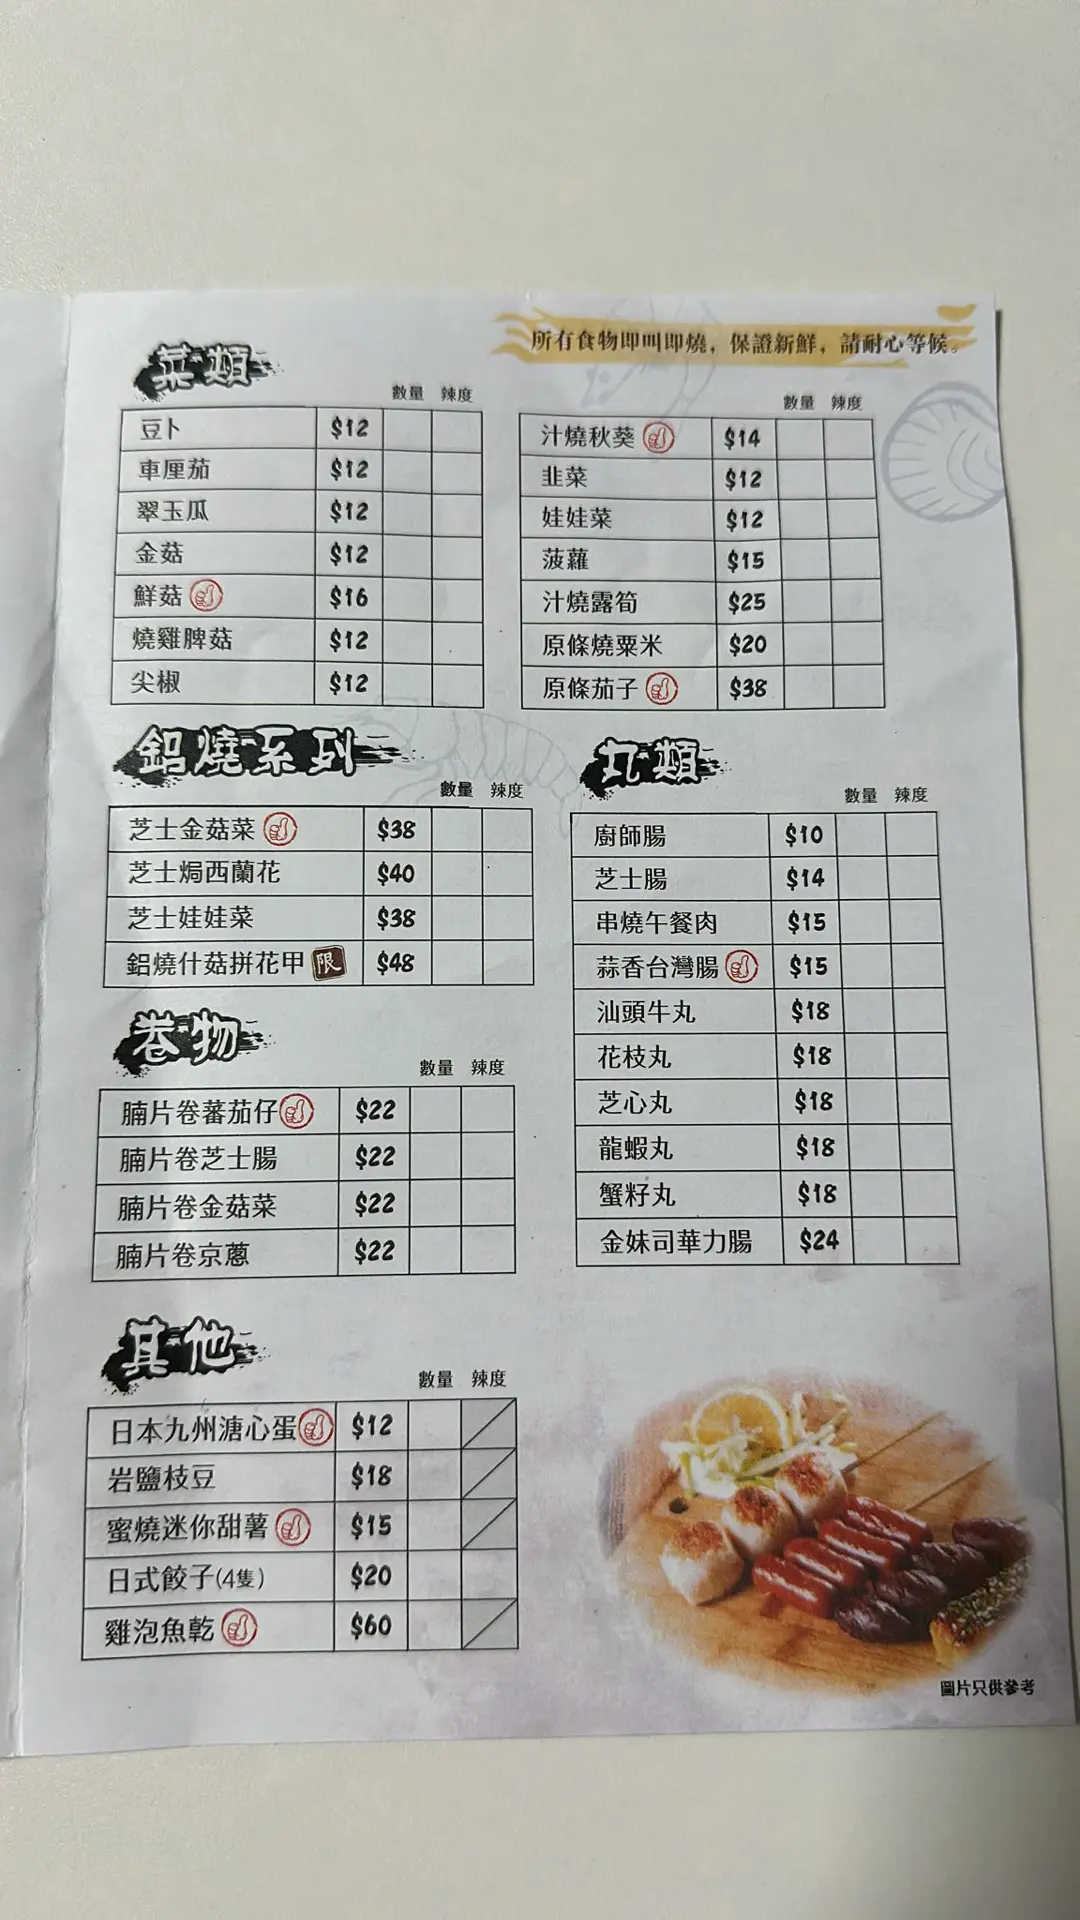 所有食物即叫即燒，保證新鮮，請耐心等候。
菜類
數量 辣度
豆卜 $12
車厘茄 $12
翠玉瓜 $12
金菇 $12
鮮菇 $16
燒雞脾菇 $12
尖椒 $12
數量 辣度
汁燒秋葵 $14
韭菜 $12
娃娃菜 $12
菠蘿 $15
汁燒露筍 $25
原條燒粟米 $20
原條茄子 $38
鋁燒系列
數量 辣度
芝士金菇菜 $38
芝士焗西蘭花 $40
芝士娃娃菜 $38
鋁燒什菇拼花甲 限 $48
丸類
數量 辣度
廚師腸 $10
芝士腸 $14
串燒午餐肉 $15
蒜香台灣腸 $15
汕頭牛丸 $18
花枝丸 $18
芝心丸 $18
龍蝦丸 $18
蟹籽丸 $18
金妹司華力腸 $24
卷物
數量 辣度
腩片卷蕃茄仔 $22
腩片卷芝士腸 $22
腩片卷金菇菜 $22
腩片卷京蔥 $22
其他
數量 辣度
日本九州溏心蛋 $12
岩鹽枝豆 $18
蜜燒迷你甜薯 $15
日式餃子(4隻) $20
雞泡魚乾 $60
圖片只供參考